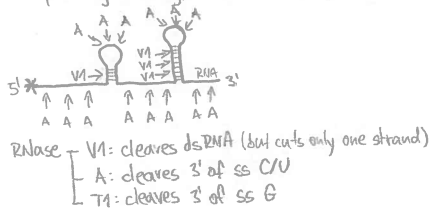 A
A A
A A A
A A
V1→ V1→
V1→
V1→ V1→ RNA
5' 3'
A A A A A A A A
RNase V1: cleaves dsRNA (but cuts only one strand)
A: cleaves 3' of ss C/U
T1: cleaves 3' of ss G